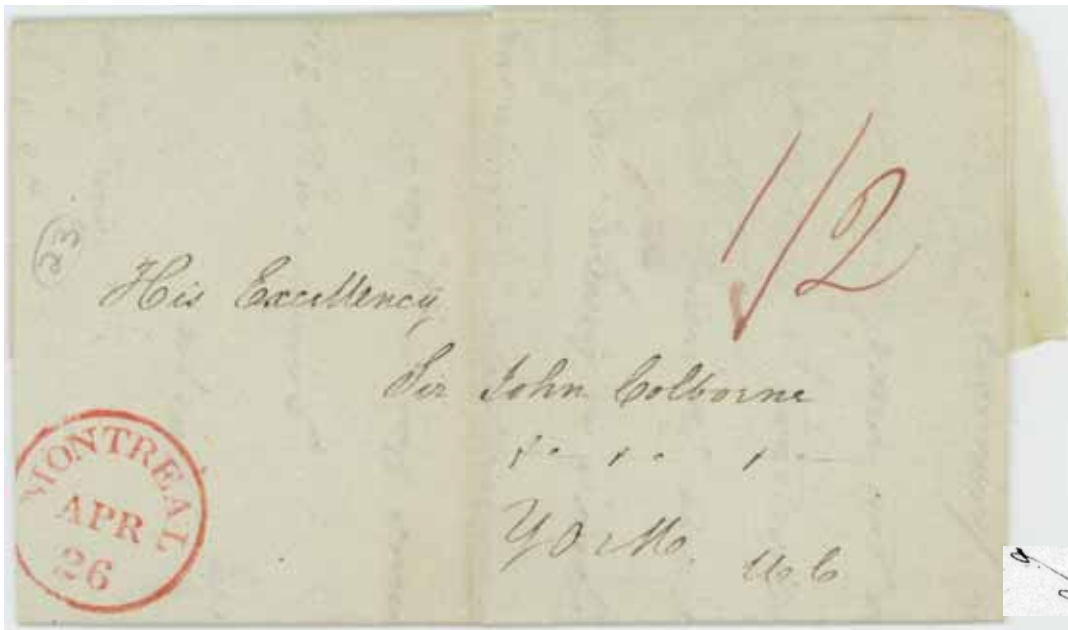 1/2
23
His Excellency
Sir John Colborne
York, U.C
MONTREAL
APR
26